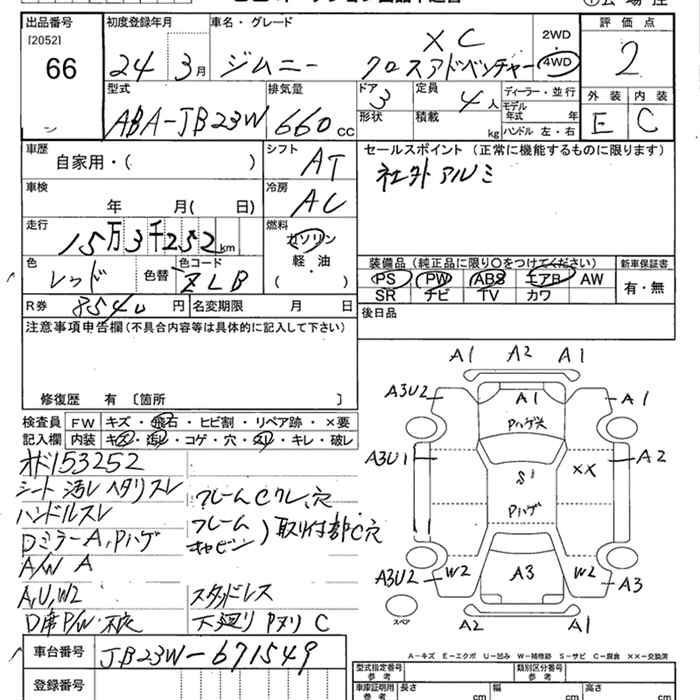 出品番号 初度登録年月 車名・グレード 評価点
[2052]
66 24 3月 ジムニー XC クロスアドベンチャー 2WD 4WD 2
型式 排気量 ドア 定員 ディーラー・並行 外装 内装
ABA-JB23W 660cc 3 4人 モデル年式 年 E C
形状 積載 kg ハンドル 左・右
車歴 シフト セールスポイント(正常に機能するものに限ります)
自家用・( ) AT 社外アルミ
車検 冷房
年 月( 日) AC
走行 燃料
15万3千252km ガソリン
軽・油
( )
色 色替 色コード 装備品(純正品に限り〇をつけてください) 新車保証書
レッド ZLB PS PW ABS エアB AW 有・無
SR ナビ TV カワ
R券 8540円 名変期限 月 日 後日品
注意事項申告欄(不具合内容等は具体的に記入して下さい)
修復歴 有 〔箇所 〕
検査員記入欄 FW キズ・飛石・ヒビ割・リペア跡・×要
内装 キズ・汚レ・コゲ・穴・スレ・キレ・破レ
オド153252
シート汚レヘタリスレ
ハンドルスレ
Dミラー A, Pハゲ
A/W A
A,U,W2
D席P/W不良
フレームCクレ、穴
フレーム
キャビン)取付部C穴
スタッドレス
下廻りPヌリ C
A1 A2 A1
A3U2 A1 A1
Pハゲ大
A3U1 S1 XX A2
Pハゲ
A3U2 W2 A3 W2 A3
スペア A2 A1
A-キズ E-エクボ U-凹み W-補修跡 S-サビ C-腐食 XX-交換済
車台番号 JB23W-671549
登録番号
型式指定番号 参考 類別区分番号 参考
車庫証明用 参考 長さ cm 幅 cm 高さ cm